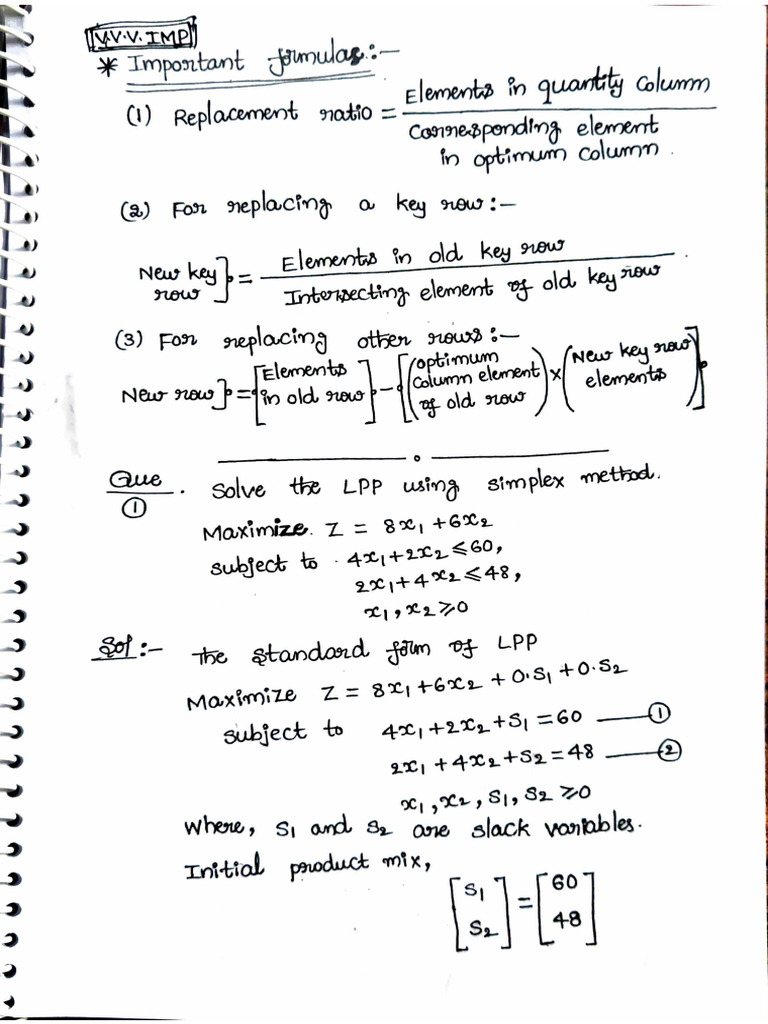 V.V.V. IMP
* Important formulas:-
(1) Replacement ratio = Elements in quantity column / Corresponding element in optimum column.
(2) For replacing a key row:-
New key row} = Elements in old key row / Intersecting element of old key row.
(3) For replacing other rows:-
New row} = [Elements in old row] - [(Optimum column element of old row) × (New key row elements)]
Que ①. Solve the LPP using simplex method.
Maximize. Z = 8x₁ + 6x₂
subject to . 4x₁ + 2x₂ ≤ 60,
2x₁ + 4x₂ ≤ 48,
x₁, x₂ ≥ 0
Sol:- The standard form of LPP
Maximize Z = 8x₁ + 6x₂ + 0·S₁ + 0·S₂
subject to 4x₁ + 2x₂ + S₁ = 60 —— ①
2x₁ + 4x₂ + S₂ = 48 —— ②
x₁, x₂, S₁, S₂ ≥ 0
Where, S₁ and S₂ are slack variables.
Initial product mix,
[S₁ S₂] = [60 48]